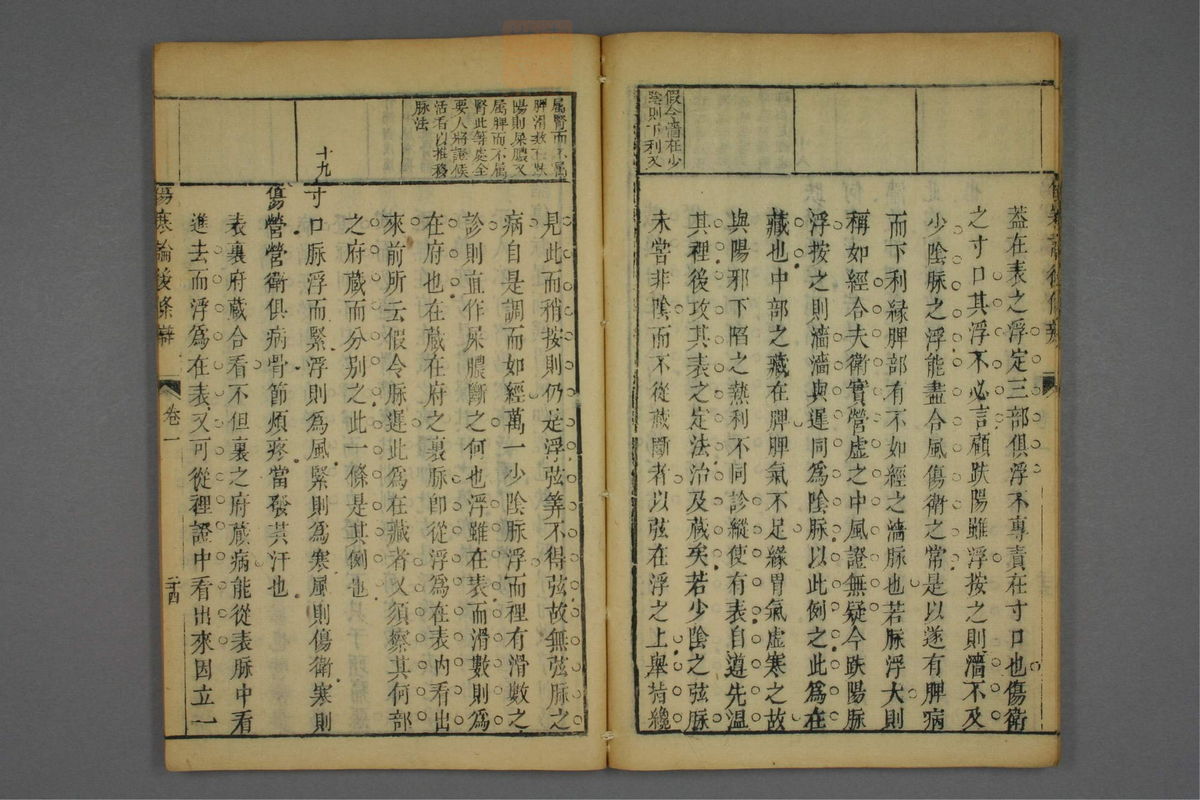 假令濇在少
陰則下利又
蓋在表之浮定三部俱浮不專責在寸口也傷衛
之寸口其浮不必言顧趺陽雖浮按之則濇不及
少陰脉之浮能盡合風傷衛之常是以遂有脾病
而下利緣脾部有不如經之濇脉也若脈浮大則
稱如經合夫衛實營虛之中風證無疑今趺陽脈
浮按之則濇濇與遲同爲陰脉以此例之此爲在
藏也中部之藏在脾脾氣不足緣胃氣虛寒之故
與陽邪下陷之熱利不同診縱使有表自遵先溫
其裡後攻其表之定法治及藏矣若少陰之弦脉
未嘗非陰而不從藏斷者以弦在浮之上舉指纔
屬腎而不屬
脾滑數在少
陽則屎膿又
屬脾而不屬
腎此等處全
要人將證候
活看以推移
脉法
見此而稍按則仍是浮弦等不得弦故無弦脉之
病自是調而如經萬一少陰脉浮而裡有滑數之
診則直作屎膿斷之何也浮雖在表而滑數則爲
在府也在藏在府之裏脉即從浮爲在表內看出
來前所云假令脉遲此爲在藏者又須察其何部
之府藏而分别之此一條是其例也
十九
寸口脉浮而緊浮則爲風緊則爲寒風則傷衛寒則
傷營營衛俱病骨節煩疼當發其汗也
表裏府藏合看不但裏之府藏病能從表脉中看
進去而浮爲在表又可從裡證中看出來因立一
傷寒論後條辯
卷一
二十四